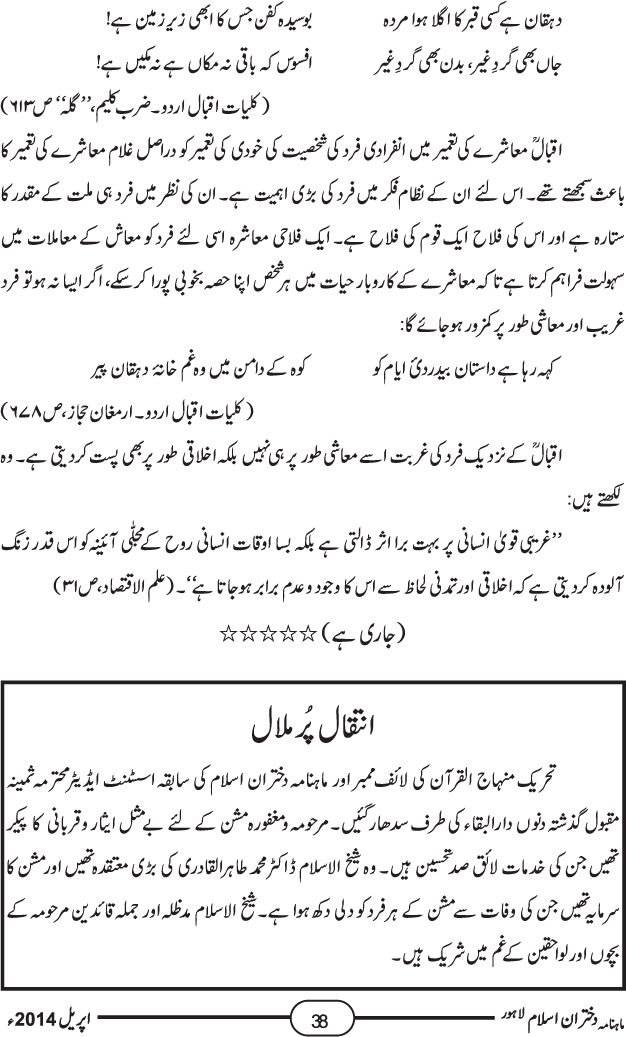 دہقان ہے کسی قبر کا اگلا ہوا مردہ بوسیدہ کفن جس کا ابھی زیرِ زمین ہے!
جاں بھی گردِ غیر، بدن بھی گردِ غیر افسوس کہ باقی نہ مکاں ہے نہ مکیں ہے!
(کلیات اقبال اردو۔ ضرب کلیم، ’’گلہ‘‘ ص۶۱۳)
اقبالؒ معاشرے کی تعمیر میں انفرادی فرد کی شخصیت کی خودی کی تعمیر کو دراصل غلام معاشرے کی تعمیر کا
باعث سمجھتے تھے۔ اس لئے ان کے نظام فکر میں فرد کی بڑی اہمیت ہے۔ ان کی نظر میں فرد ہی ملت کے مقدر کا
ستارہ ہے اور اس کی فلاح ایک قوم کی فلاح ہے۔ ایک فلاحی معاشرہ اسی لئے فرد کو معاش کے معاملات میں
سہولت فراہم کرتا ہے تاکہ معاشرے کے کاروبار حیات میں ہر شخص اپنا حصہ بخوبی پورا کرسکے، اگر ایسا نہ ہو تو فرد
غریب اور معاشی طور پر کمزور ہوجائے گا:
کہہ رہا ہے داستان بیدردیٔ ایام کو کوہ کے دامن میں وہ غم خانۂ دہقان پیر
(کلیات اقبال اردو۔ ارمغان حجاز، ص۶۷۸)
اقبالؒ کے نزدیک فرد کی غربت اسے معاشی طور پر ہی نہیں بلکہ اخلاقی طور پر بھی پست کردیتی ہے۔ وہ
لکھتے ہیں:
’’غریبی قویٰ انسانی پر بہت برا اثر ڈالتی ہے بلکہ بسا اوقات انسانی روح کے مجلّٰی آئینہ کو اس قدر زنگ
آلودہ کردیتی ہے کہ اخلاقی اور تمدنی لحاظ سے اس کا وجود و عدم برابر ہوجاتا ہے‘‘۔ (علم الاقتصاد، ص۳۱)
(جاری ہے) ☆☆☆☆☆
انتقال پُر ملال
تحریک منہاج القرآن کی لائف ممبر اور ماہنامہ دختران اسلام کی سابقہ اسسٹنٹ ایڈیٹر محترمہ ثمینہ
مقبول گذشتہ دنوں دارالبقاء کی طرف سدھار گئیں۔ مرحومہ و مغفورہ مشن کے لئے بے مثل ایثار و قربانی کا پیکر
تھیں جن کی خدمات لائق صد تحسین ہیں۔ وہ شیخ الاسلام ڈاکٹر محمد طاہرالقادری کی بڑی معتقدہ تھیں اور مشن کا
سرمایہ تھیں جن کی وفات سے مشن کے ہر فرد کو دلی دکھ ہوا ہے۔ شیخ الاسلام مدظلہ اور جملہ قائدین مرحومہ کے
بچوں اور لواحقین کے غم میں شریک ہیں۔
ماہنامہ دختران اسلام لاہور 38 اپریل 2014ء